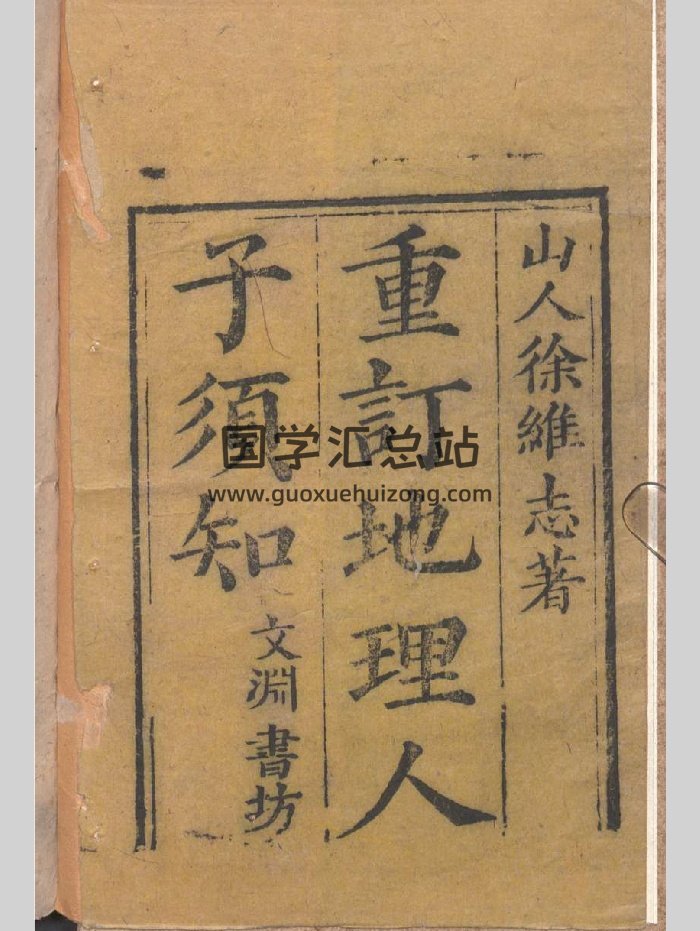 山人徐維志著
重訂地理人
子須知
文淵書坊
国学汇总站
www.guoxuehuizong.com